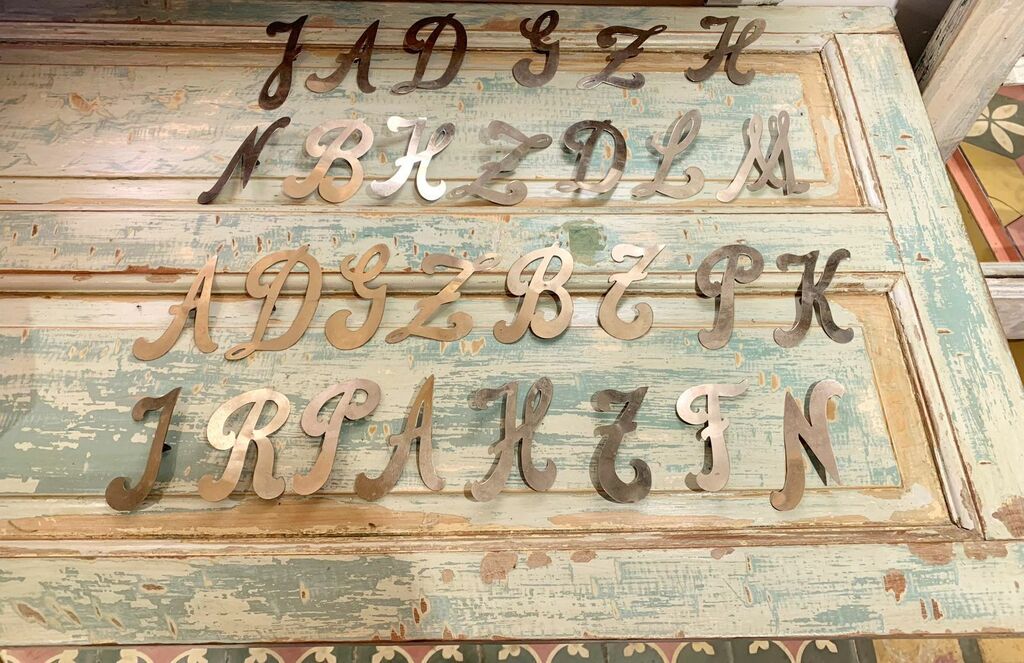 J A D G Z H
N B H Z D L M
A D G Z B Z P K
J R P A H Z F N